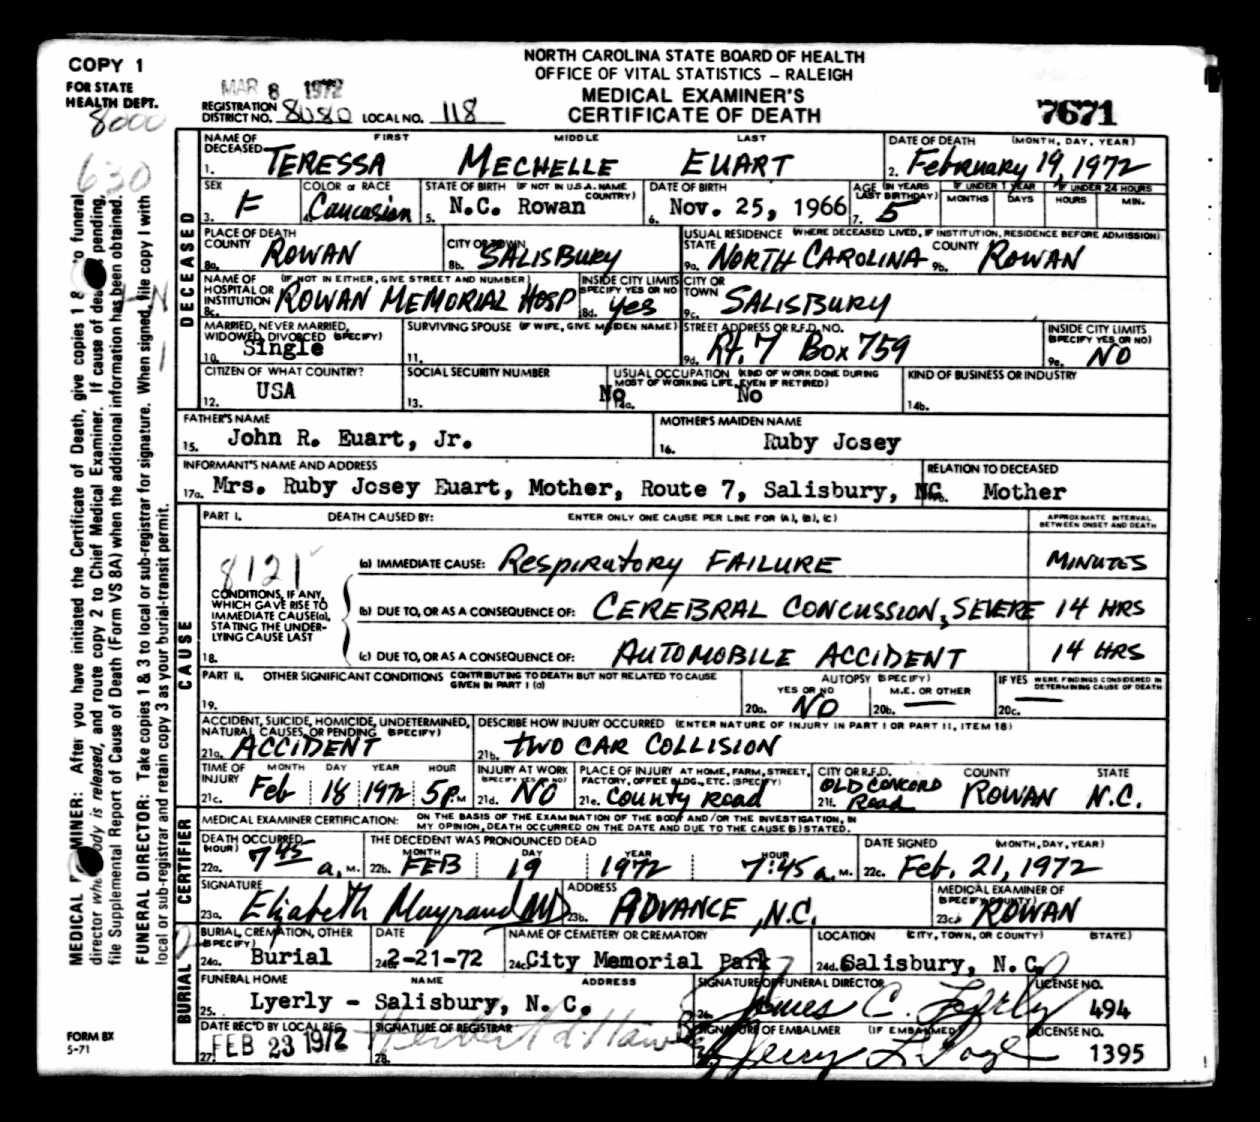 COPY 1
FOR STATE
HEALTH DEPT.
8000
630
NORTH CAROLINA STATE BOARD OF HEALTH
OFFICE OF VITAL STATISTICS – RALEIGH
MEDICAL EXAMINER'S
CERTIFICATE OF DEATH
MAR 8 1972
REGISTRATION DISTRICT NO. 8080 LOCAL NO. 118
7671
NAME OF DECEASED FIRST MIDDLE LAST DATE OF DEATH (MONTH, DAY, YEAR)
1. TERESSA MECHELLE EUART 2. February 19, 1972
SEX COLOR or RACE STATE OF BIRTH (IF NOT IN U.S.A. NAME COUNTRY) DATE OF BIRTH AGE (IN YEARS LAST BIRTHDAY) IF UNDER 1 YEAR IF UNDER 24 HOURS
MONTHS DAYS HOURS MIN.
3. F 4. Caucasian 5. N.C. Rowan 6. Nov. 25, 1966 7. 5
PLACE OF DEATH USUAL RESIDENCE (WHERE DECEASED LIVED, IF INSTITUTION, RESIDENCE BEFORE ADMISSION)
COUNTY CITY OR TOWN STATE COUNTY
8a. ROWAN 8b. SALISBURY 9a. NORTH CAROLINA 9b. ROWAN
NAME OF HOSPITAL OR INSTITUTION (IF NOT IN EITHER, GIVE STREET AND NUMBER) INSIDE CITY LIMITS SPECIFY YES OR NO CITY OR TOWN
8c. ROWAN MEMORIAL HOSP 8d. yes 9c. SALISBURY
MARRIED, NEVER MARRIED, WIDOWED, DIVORCED (SPECIFY) SURVIVING SPOUSE (IF WIFE, GIVE MAIDEN NAME) STREET ADDRESS OR R.F.D. NO. INSIDE CITY LIMITS (SPECIFY YES OR NO)
10. Single 11. 9d. Rt. 7 Box 759 9e. NO
CITIZEN OF WHAT COUNTRY? SOCIAL SECURITY NUMBER USUAL OCCUPATION (KIND OF WORK DONE DURING MOST OF WORKING LIFE, EVEN IF RETIRED) KIND OF BUSINESS OR INDUSTRY
12. USA 13. No 14a. No 14b.
FATHER'S NAME MOTHER'S MAIDEN NAME
15. John R. Euart, Jr. 16. Ruby Josey
INFORMANT'S NAME AND ADDRESS RELATION TO DECEASED
17a. Mrs. Ruby Josey Euart, Mother, Route 7, Salisbury, NC. Mother
PART I. DEATH CAUSED BY: ENTER ONLY ONE CAUSE PER LINE FOR (A), (B), (C) APPROXIMATE INTERVAL BETWEEN ONSET AND DEATH
8121
(a) IMMEDIATE CAUSE: Respiratory FAILURE MINUTES
CONDITIONS, IF ANY,
WHICH GAVE RISE TO
IMMEDIATE CAUSE(a),
STATING THE UNDER-
LYING CAUSE LAST
(b) DUE TO, OR AS A CONSEQUENCE OF: CEREBRAL CONCUSSION, SEVERE 14 HRS
18. (c) DUE TO, OR AS A CONSEQUENCE OF: AUTOMOBILE ACCIDENT 14 HRS
PART II. OTHER SIGNIFICANT CONDITIONS CONTRIBUTING TO DEATH BUT NOT RELATED TO CAUSE GIVEN IN PART I (a) AUTOPSY (SPECIFY) IF YES WERE FINDINGS CONSIDERED IN DETERMINING CAUSE OF DEATH
YES OR NO M.E. OR OTHER
19. 20a. NO 20b. — 20c. —
ACCIDENT, SUICIDE, HOMICIDE, UNDETERMINED, NATURAL CAUSES, OR PENDING (SPECIFY) DESCRIBE HOW INJURY OCCURRED (ENTER NATURE OF INJURY IN PART I OR PART II, ITEM 18)
21a. ACCIDENT 21b. TWO CAR COLLISION
TIME OF INJURY MONTH DAY YEAR HOUR INJURY AT WORK (SPECIFY YES OR NO) PLACE OF INJURY AT HOME, FARM, STREET, FACTORY, OFFICE BLDG., ETC. (SPECIFY) CITY OR R.F.D. COUNTY STATE
21c. Feb 18 1972 5 P.M 21d. NO 21e. County Road 21f. OLD CONCORD Road ROWAN N.C.
MEDICAL EXAMINER CERTIFICATION: ON THE BASIS OF THE EXAMINATION OF THE BODY AND/OR THE INVESTIGATION, IN MY OPINION, DEATH OCCURRED ON THE DATE AND DUE TO THE CAUSE(S) STATED.
DEATH OCCURRED (HOUR) THE DECEDENT WAS PRONOUNCED DEAD DATE SIGNED (MONTH, DAY, YEAR)
MONTH DAY YEAR HOUR
22a. 7 45 a. M. 22b. FEB 19 1972 7:45 a. M. 22c. Feb. 21, 1972
SIGNATURE ADDRESS MEDICAL EXAMINER OF (SPECIFY COUNTY)
23a. MD 23b. ADVANCE, N.C. 23c. ROWAN
BURIAL, CREMATION, OTHER (SPECIFY) DATE NAME OF CEMETERY OR CREMATORY LOCATION (CITY, TOWN, OR COUNTY) (STATE)
24a. Burial 24b. 2-21-72 24c. City Memorial Park 24d. Salisbury, N.C.
FUNERAL HOME NAME ADDRESS SIGNATURE OF FUNERAL DIRECTOR LICENSE NO.
25. Lyerly - Salisbury, N. C. 26. James C. Lyerly 494
DATE REC'D BY LOCAL REG. SIGNATURE OF REGISTRAR SIGNATURE OF EMBALMER (IF EMBALMED) LICENSE NO.
27. FEB 23 1972 28. Jerry L. 1395
DECEASED
CAUSE
CERTIFIER
BURIAL
FORM BX
5-71
director when body is released, and route copy 2 to Chief Medical Examiner. If cause of death is pending,
file Supplemental Report of Cause of Death (Form VS 8A) when the additional information has been obtained.
FUNERAL DIRECTOR: Take copies 1 & 3 to local or sub-registrar for signature. When signed, file copy I with
local or sub-registrar and retain copy 3 as your burial-transit permit.
MEDICAL MINER: After you have initiated the Certificate of Death, give copies 1 & to funeral